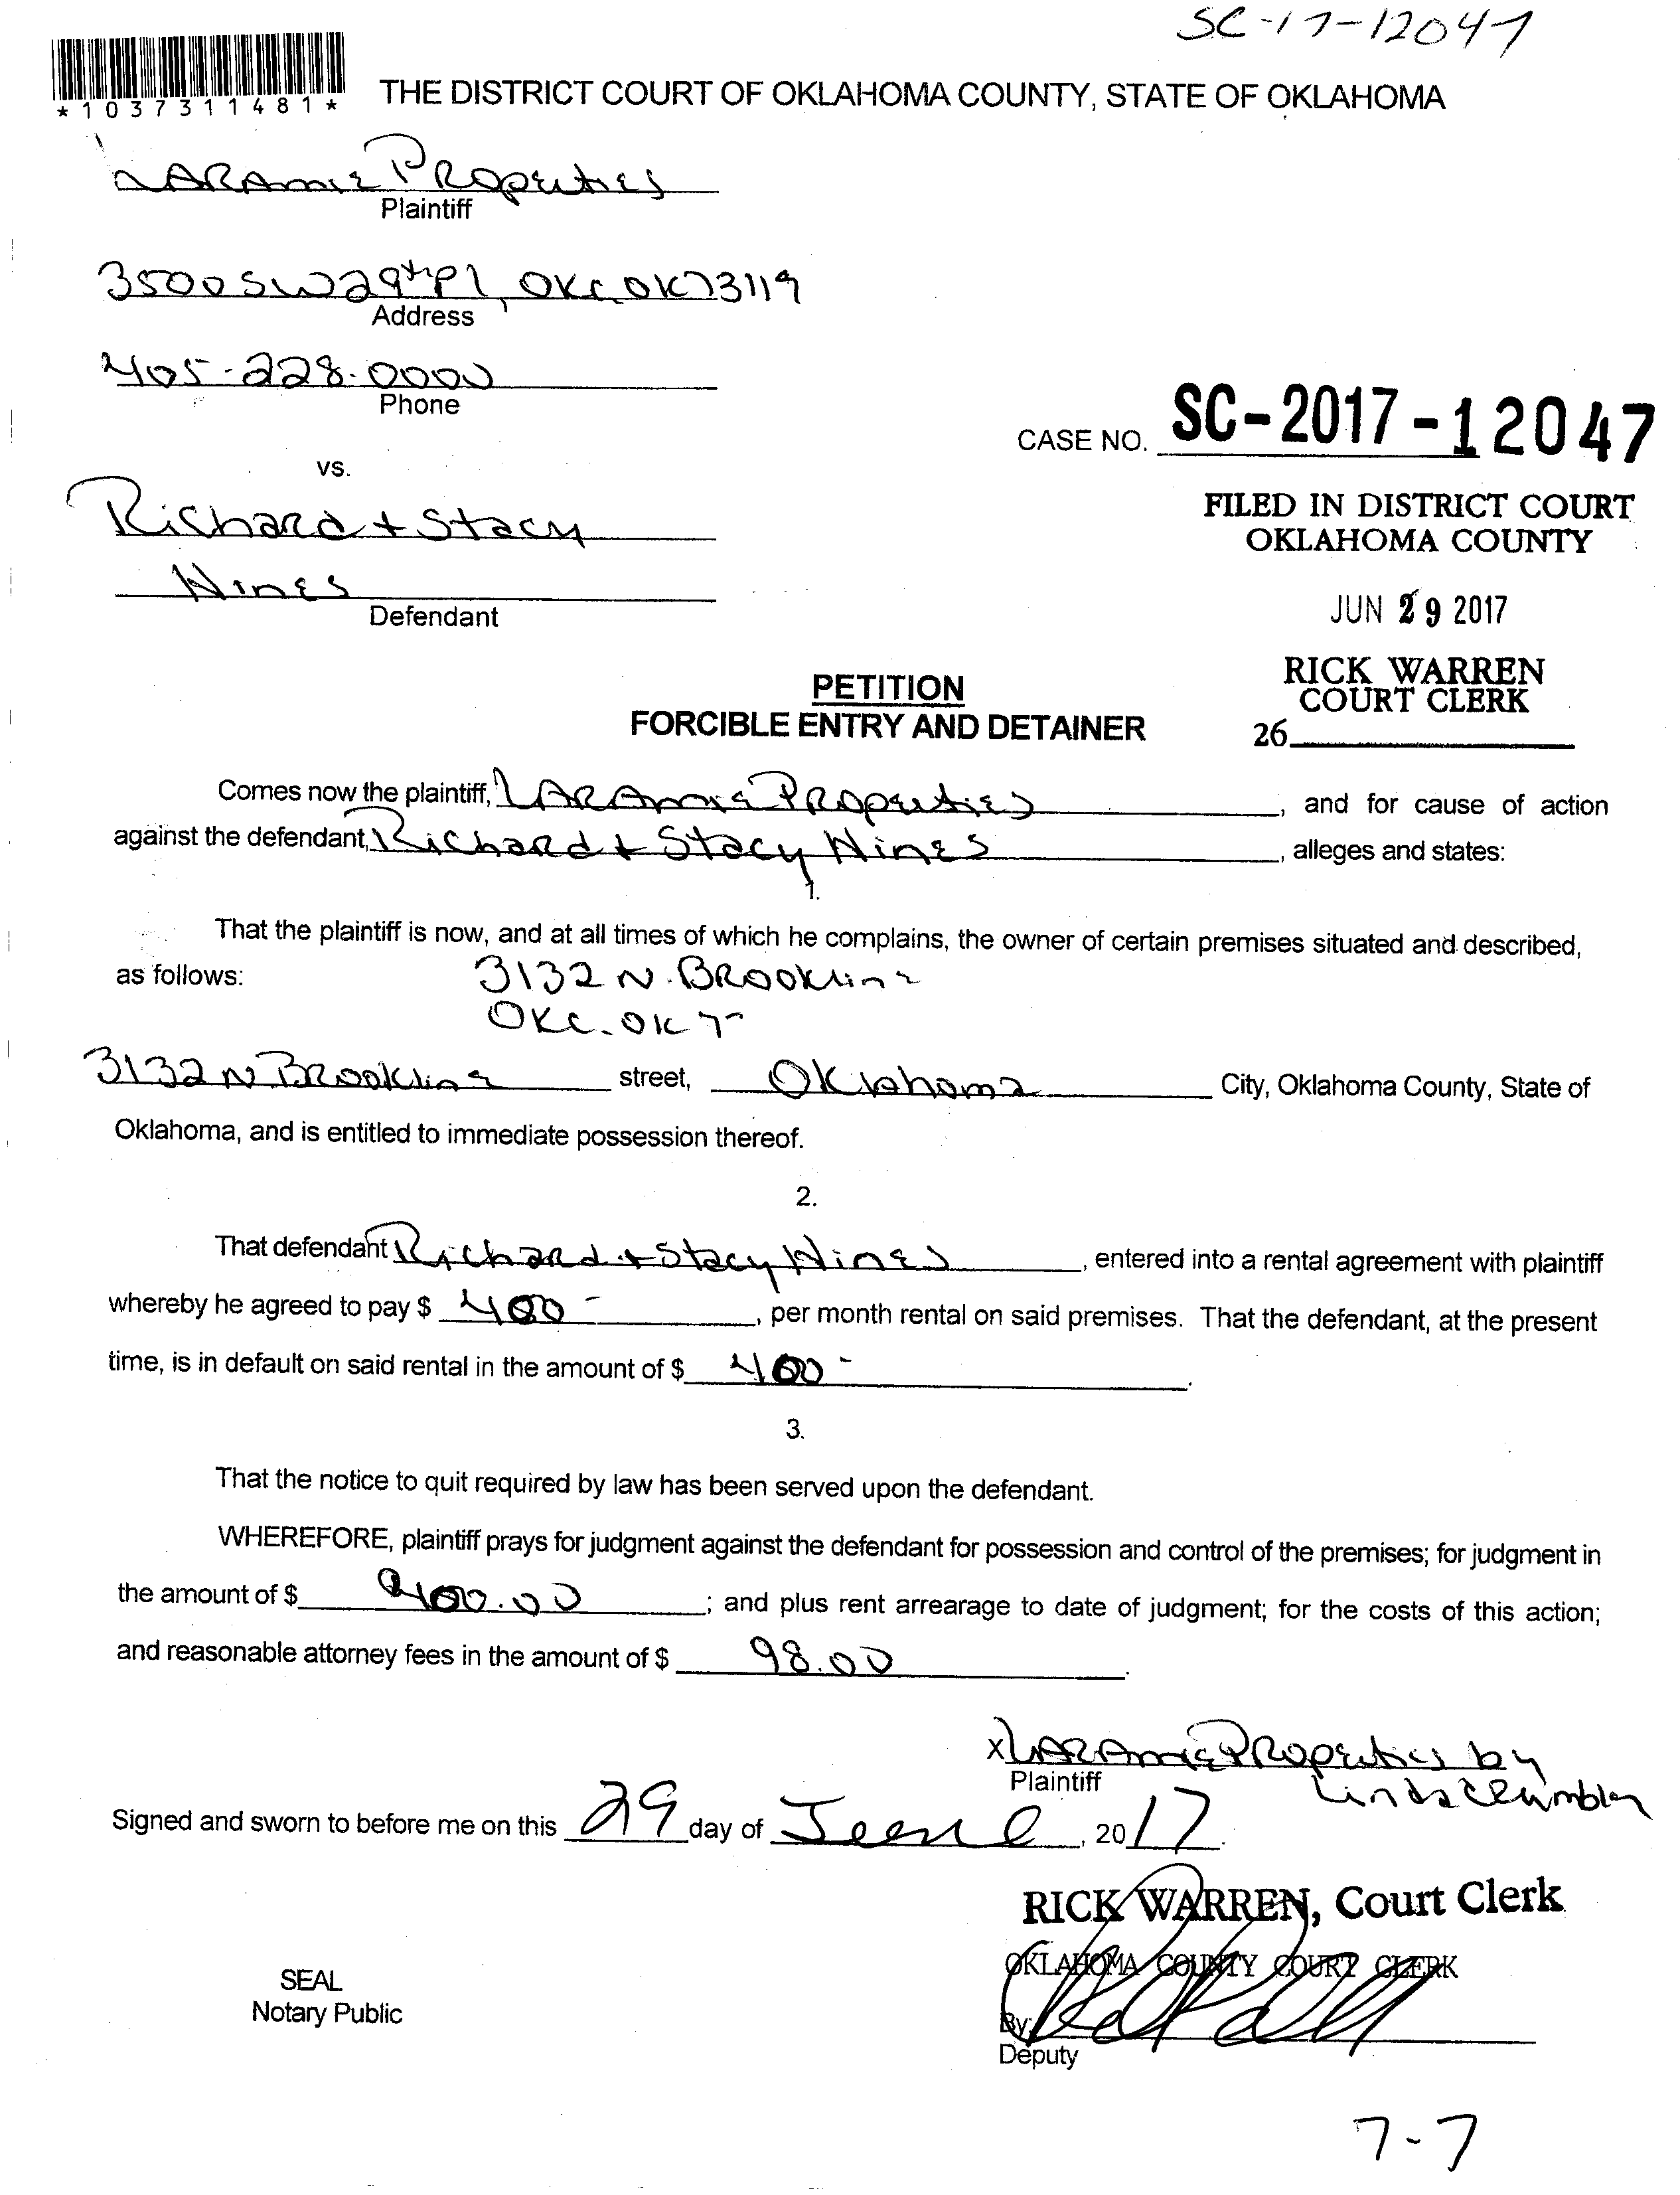 SC-17-12047
*1037311481*
THE DISTRICT COURT OF OKLAHOMA COUNTY, STATE OF OKLAHOMA
LARAmie PROperties
Plaintiff
3500 SW 29th Pl, OKC OK 73119
Address
405-228-0000
Phone
CASE NO. SC-2017-12047
vs.
Richard + Stacy
Hines
Defendant
FILED IN DISTRICT COURT
OKLAHOMA COUNTY
JUN 29 2017
RICK WARREN
COURT CLERK
26
PETITION
FORCIBLE ENTRY AND DETAINER
Comes now the plaintiff, LARAmie PROperties, and for cause of action
against the defendant, Richard + Stacy Hines, alleges and states:
1.
That the plaintiff is now, and at all times of which he complains, the owner of certain premises situated and described,
as follows: 3132 N. BROOKline
OKC. OK 7
3132 N BROOKline street, Oklahoma City, Oklahoma County, State of
Oklahoma, and is entitled to immediate possession thereof.
2.
That defendant Richard + Stacy Hines, entered into a rental agreement with plaintiff
whereby he agreed to pay $ 400-, per month rental on said premises. That the defendant, at the present
time, is in default on said rental in the amount of $ 400-.
3.
That the notice to quit required by law has been served upon the defendant.
WHEREFORE, plaintiff prays for judgment against the defendant for possession and control of the premises; for judgment in
the amount of $ 400.00; and plus rent arrearage to date of judgment; for the costs of this action;
and reasonable attorney fees in the amount of $ 98.00.
X LARAmie PROperties by
Plaintiff Linda
Signed and sworn to before me on this 29 day of June, 2017.
RICK WARREN, Court Clerk
OKLAHOMA COUNTY COURT CLERK
SEAL
Notary Public
By:
Deputy
7-7